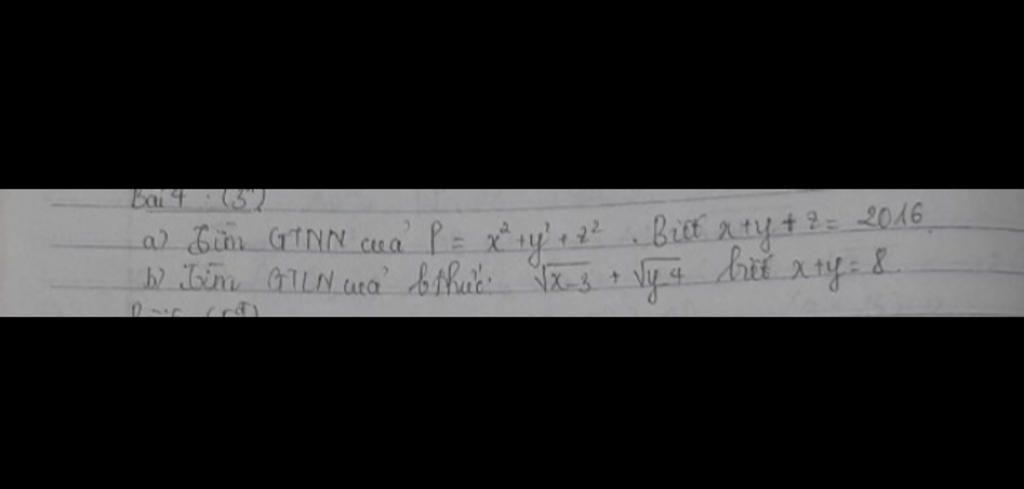 Bài 4 : (3đ)
a) Tìm GTNN của P = x² + y² + z². Biết x+y+z = 2016.
b) Tìm GTLN của bthức: √x-3 + √y-4 biết x+y = 8.